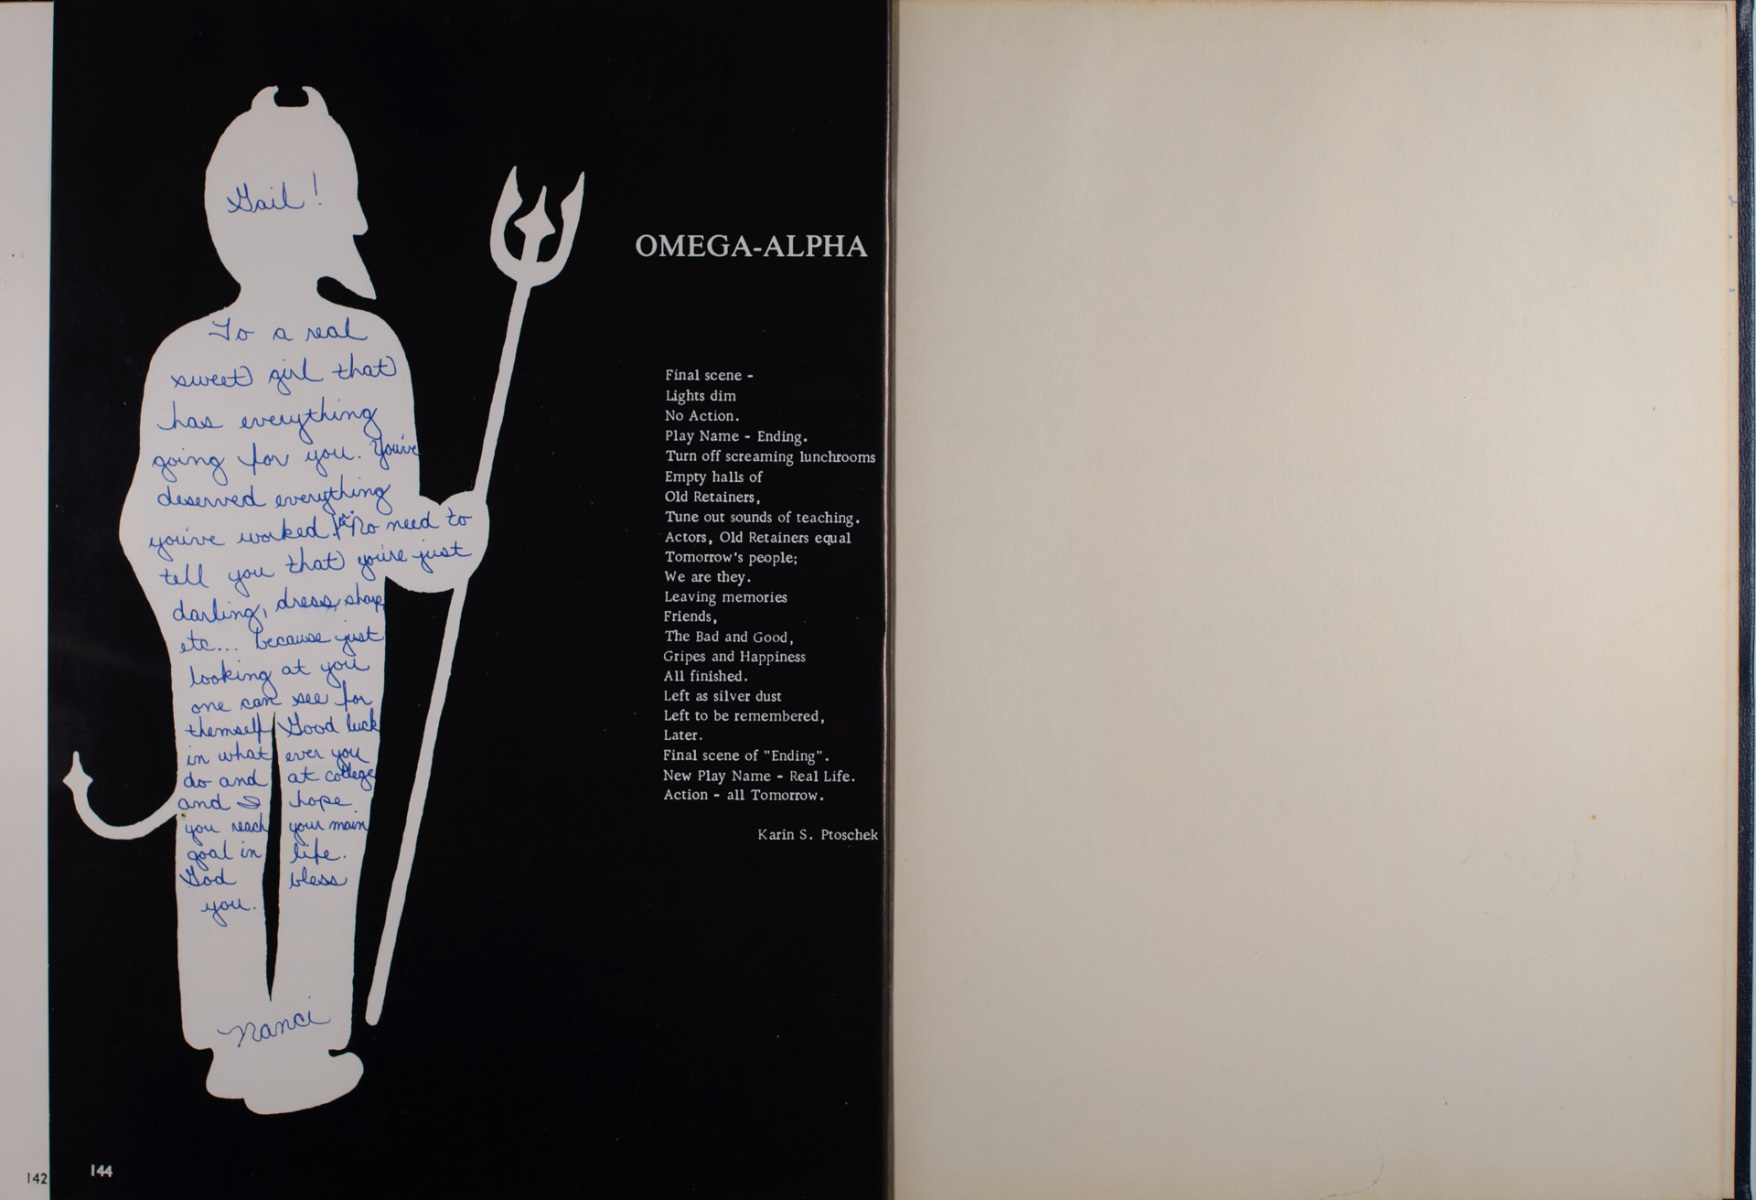 Gail!
To a real
sweet girl that
has everything
going for you. You've
deserved everything
you've worked for. No need to
tell you that you're just
darling, dress, shape,
etc... because just
looking at you
one can see for
themself Good luck
in what ever you
do and at college
and I hope
you reach your main
goal in life.
God bless
you.
Nanci
OMEGA-ALPHA
Final scene -
Lights dim
No Action.
Play Name - Ending.
Turn off screaming lunchrooms
Empty halls of
Old Retainers,
Tune out sounds of teaching.
Actors, Old Retainers equal
Tomorrow's people;
We are they.
Leaving memories
Friends,
The Bad and Good,
Gripes and Happiness
All finished.
Left as silver dust
Left to be remembered,
Later.
Final scene of "Ending".
New Play Name - Real Life.
Action - all Tomorrow.
Karin S. Ptoschek
142
144